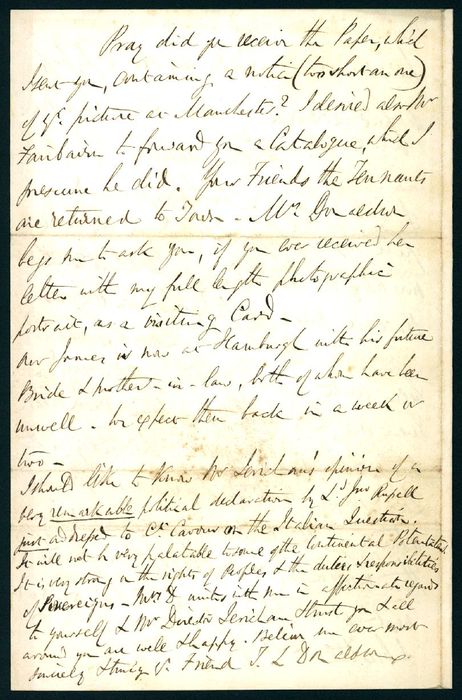 Pray did you receive the Paper, wh'd
I sent you, containing a notice (too short an one)
of yr. picture at Manchester? I desired also Mr
Fairbairn to forward you a Catalogue, which I
presume he did. Your Friends the Tennants
are returned to Town - Mrs. Donaldson
begs me to ask you, if you ever received her
letter with my full length photographic
portrait, as a visiting Card -
Our James is now at Hamburgh with his future
Bride & mother-in-law, both of whom have been
unwell. We expect them back in a week or
two -
I should like to know Mr Jerichau's opinion of a
very remarkable political declaration by Ld. Jno Russell
just addressed to Ct. Cavour on the Italian Question.
It will not be very palatable to some of the Continental Potentates
It is very strong on the rights of Peoples & the duties & responsibilities
of Sovereigns - Mrs D unites with me in affectionate regards
to yourself & Mr Director Jerichau. I trust you & all
around you are well & happy. Believe me ever most
sincerely & truly yr Friend T. L Donaldson